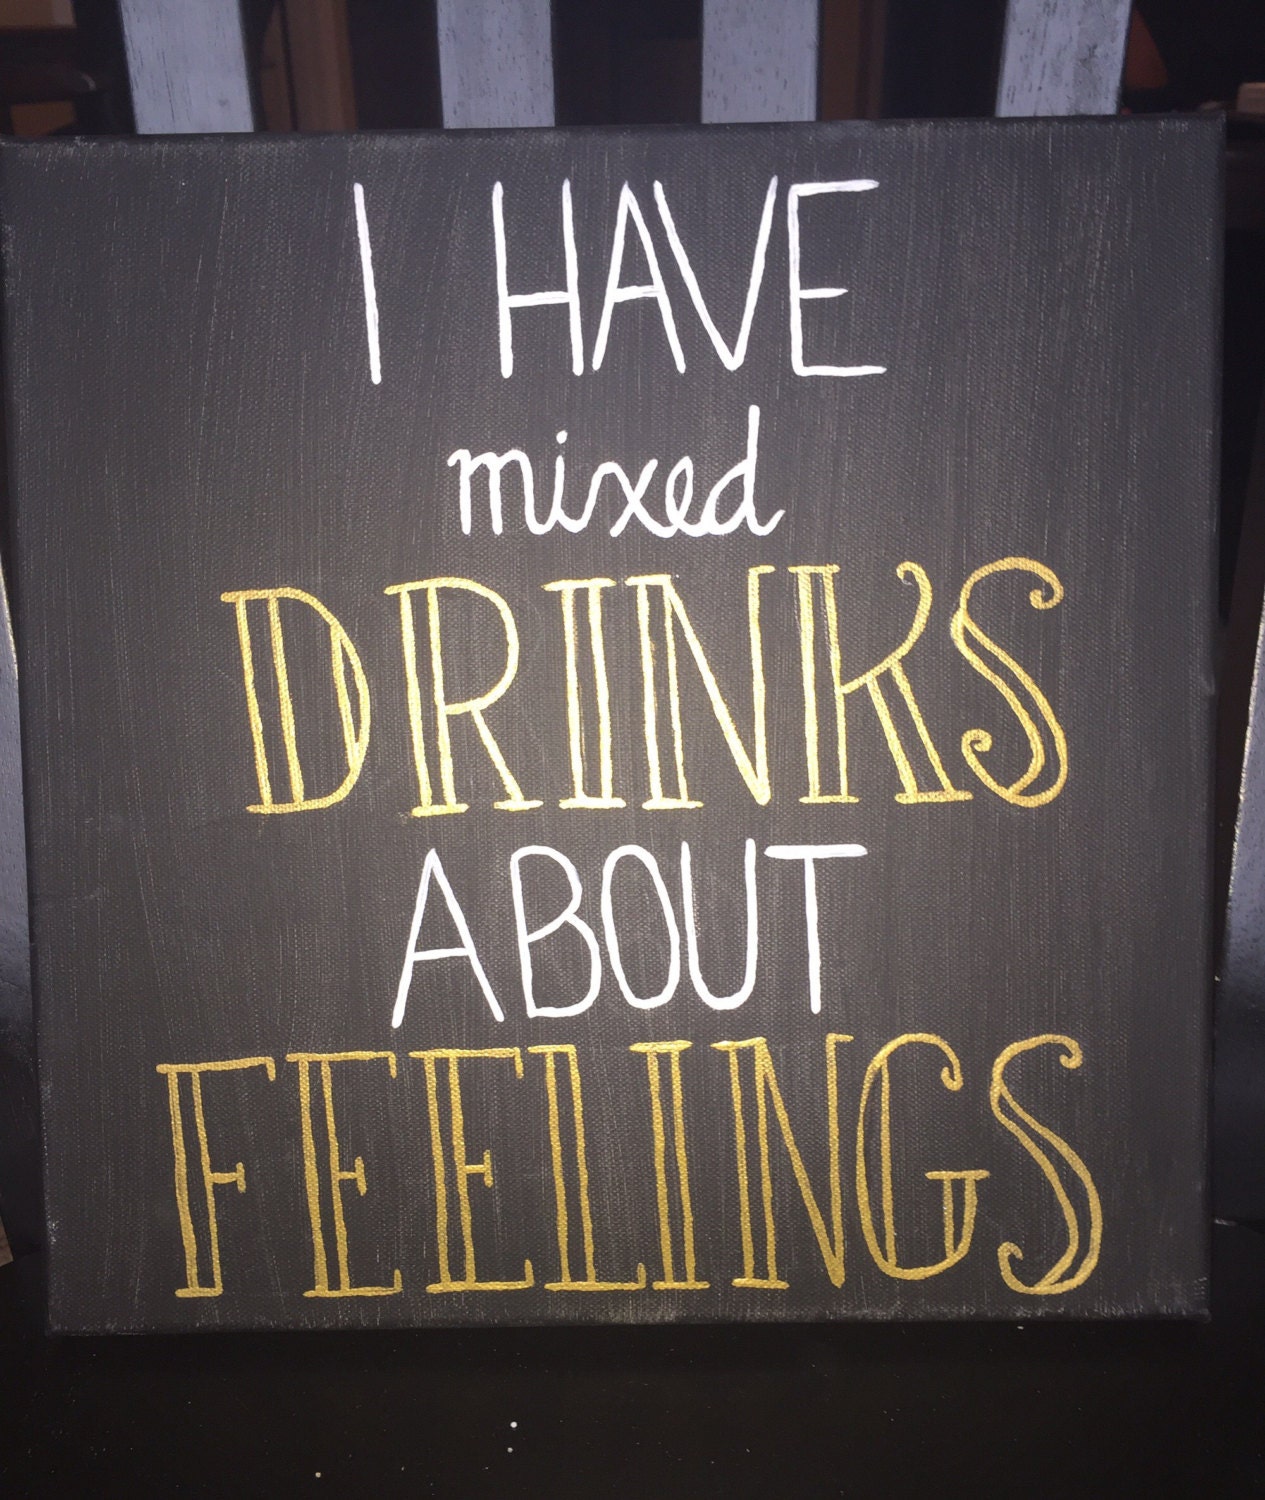 I HAVE
mixed
DRINKS
ABOUT
FEELINGS